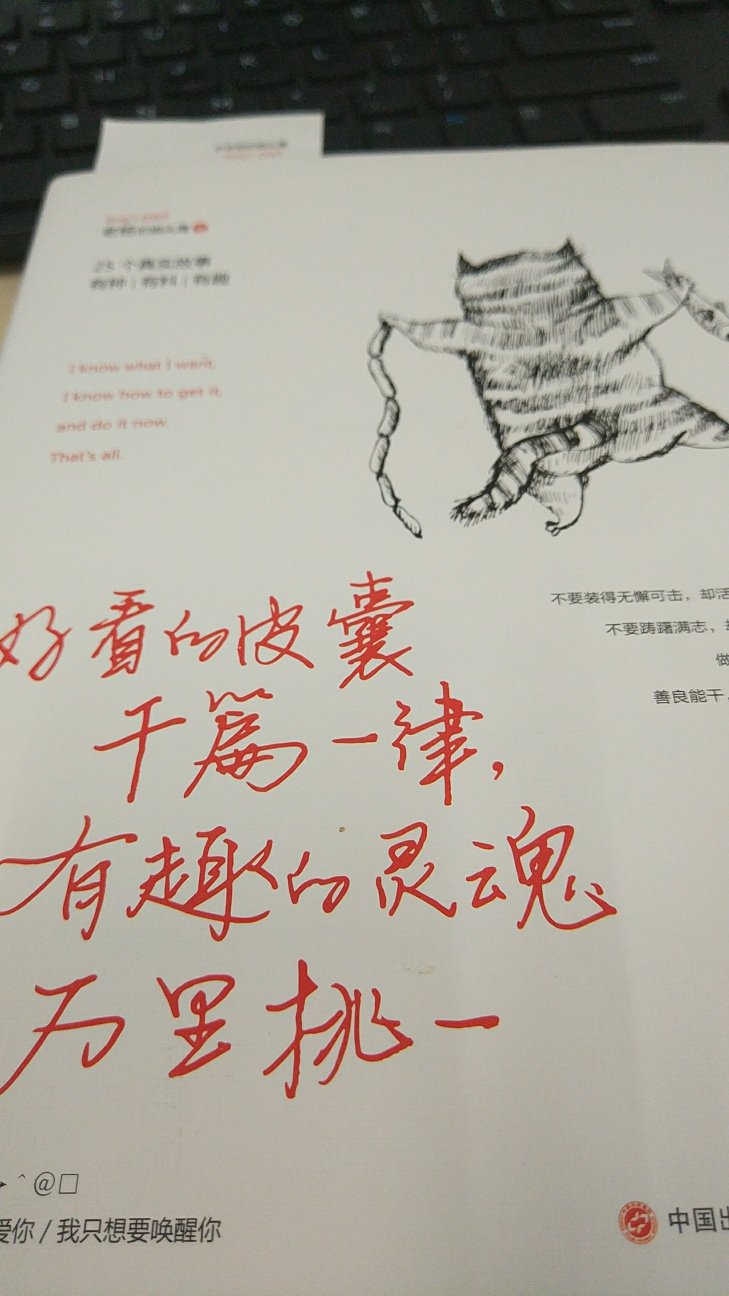 25个真实故事
有种 | 有料 | 有趣
I know what I want,
I know how to get it,
and do it now.
That's all.
不要装得无懈可击，却活
不要踌躇满志，却
做
善良能干，
好看的皮囊
千篇一律，
有趣的灵魂
万里挑一
^ @□
爱你 / 我只想要唤醒你
中国出